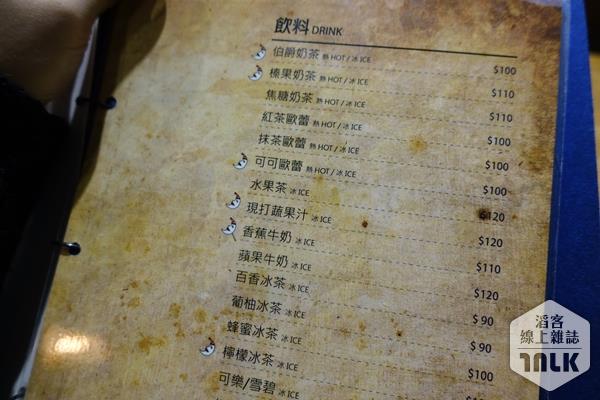 飲料 DRINK
伯爵奶茶 熱 HOT / 冰 ICE $100
榛果奶茶 熱 HOT / 冰 ICE $110
焦糖奶茶 熱 HOT / 冰 ICE $110
紅茶歐蕾 熱 HOT / 冰 ICE $100
抹茶歐蕾 熱 HOT / 冰 ICE $100
可可歐蕾 熱 HOT / 冰 ICE $100
水果茶 冰 ICE $120
現打蔬果汁 冰 ICE $120
香蕉牛奶 冰 ICE $110
蘋果牛奶 冰 ICE $120
百香冰茶 冰 ICE $ 90
葡柚冰茶 冰 ICE $ 90
蜂蜜冰茶 冰 ICE $100
檸檬冰茶 冰 ICE
可樂/雪碧 冰 ICE
滔客
線上雜誌
TALK